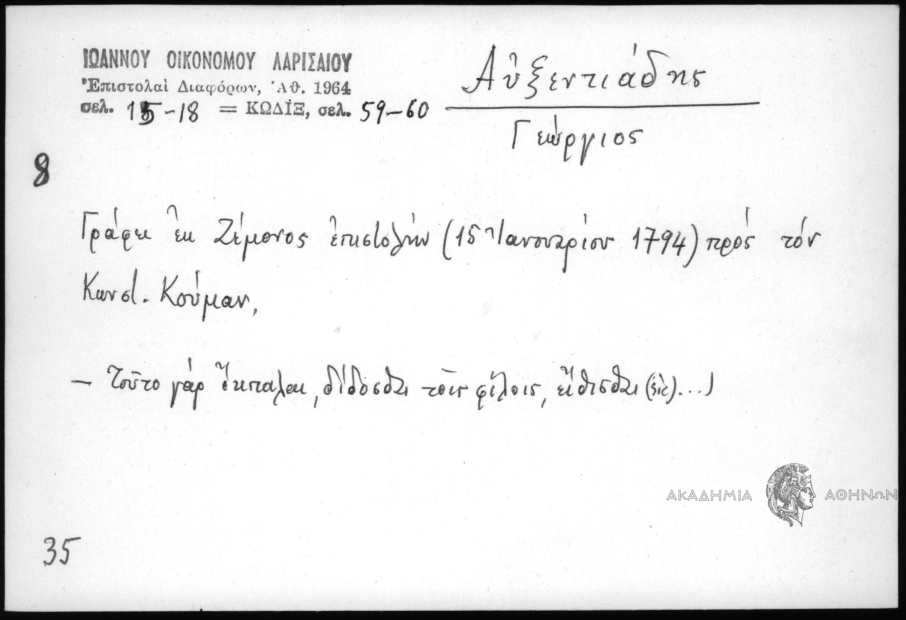 ΙΩΑΝΝΟΥ ΟΙΚΟΝΟΜΟΥ ΛΑΡΙΣΑΙΟΥ
Ἐπιστολαὶ Διαφόρων, Ἀθ. 1964
σελ. 15-18 = ΚΩΔΙΞ, σελ. 59-60
Αὐξεντιάδης
Γεώργιος
8
Γράφει ἐκ Ζέμονος ἐπιστολήν (15 Ἰανουαρίου 1794) πρός τόν
Κωνστ. Κούμαν,
— Τοῦτο γάρ ἔκπαλαι, δίδοσθαι τοῖς φίλοις, εἴθισθαι (sic)...)
ΑΚΑΔΗΜΙΑ ΑΘΗΝΩΝ
35